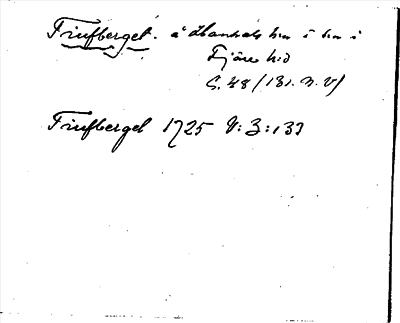 Finfberget. å Hanhals hm i hm i
Fjäre hd
S. 48 (131. N. V)
Finfberget 1725 V: 3: 133